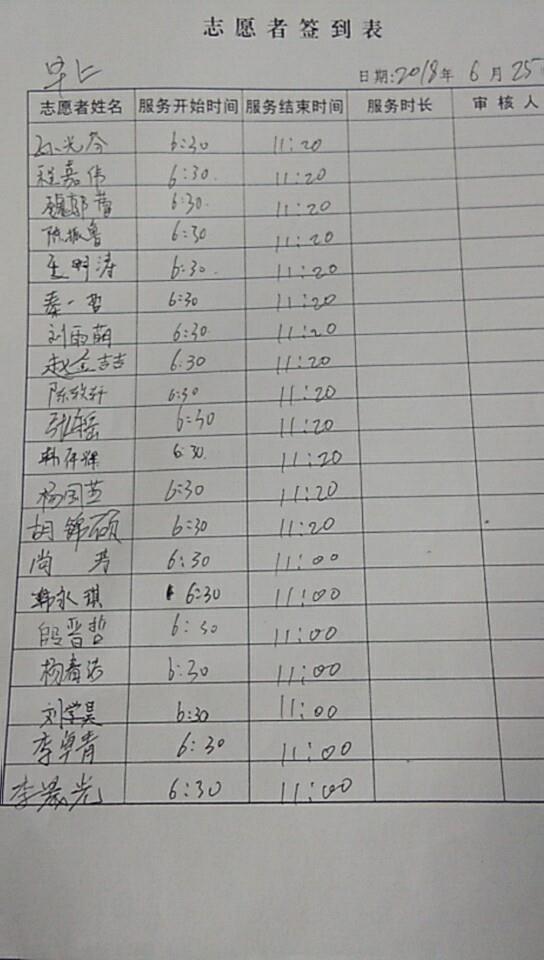 志愿者签到表
早上 日期:2018年 6月25
志愿者姓名 服务开始时间 服务结束时间 服务时长 审核人
孙光芬 6:30 11:20
程嘉伟 6:30. 11:20
魏郭蕾 6:30. 11:20
陈振鲁 6:30 11:20
王明涛 6:30. 11:20
秦一哲 6:30 11:20
刘雨萌 6:30. 11:20
赵金喆 6.30 11:20
陈致轩 6:30 11:20
张瑶 6:30 11:20
韩存辉 6:30. 11:20
杨国芝 6:30 11:20
胡锦硕 6:30 11:20
尚芳 6:30 11:00
韩永琪 6:30 11:00
段晋哲 6:30 11:00
杨春洁 6:30 11:00
刘学昊 6:30 11:00
李卓青 6:30 11:00
李晨光 6:30 11:00